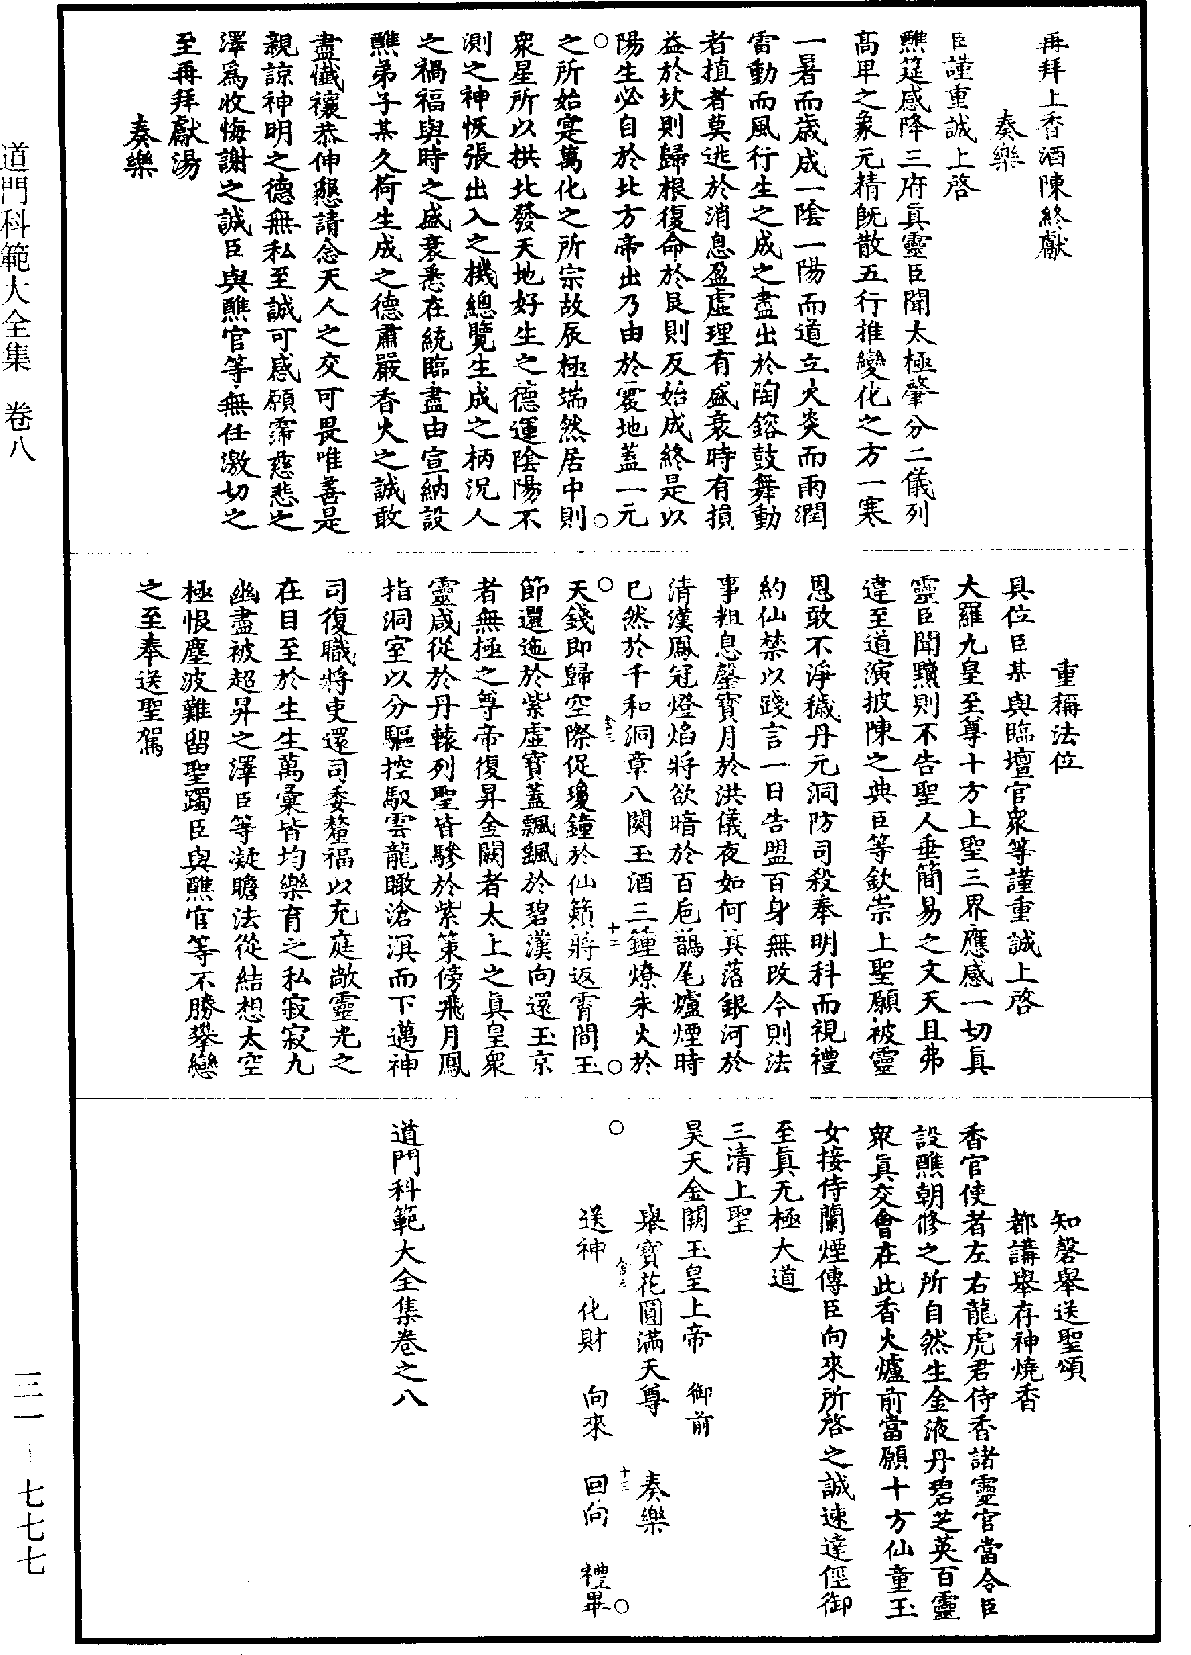 再拜上香酒陳終獻
奏樂
臣謹重誠上啓
醮筵感降三府眞靈臣聞太極肇分二儀列
高卑之象元精旣散五行推變化之方一寒
一暑而歲成一陰一陽而道立火炎而雨潤
雷動而風行生之成之盡出於陶鎔鼓舞動
者植者莫逃於消息盈虛理有盛衰時有損
益於坎則歸根復命於艮則反始成終是以
陽生必自於北方帝出乃由於震地蓋一元
之所始寔萬化之所宗故辰極端然居中則
衆星所以拱北發天地好生之德運陰陽不
測之神恢張出入之機總覽生成之柄況人
之禍福與時之盛衰悉在統臨盡由宣納設
醮弟子某久荷生成之德肅嚴香火之誠敢
盡懺禳恭伸懇請念天人之交可畏唯善是
親諒神明之德無私至誠可感願霈慈悲之
澤爲收悔謝之誠臣與醮官等無任激切之
至再拜獻湯
奏樂
重稱法位
具位臣某與臨壇官衆等謹重誠上啓
大羅九皇至尊十方上聖三界應感一切眞
靈臣聞黷則不告聖人垂簡易之文天且弗
違至道演披陳之典臣等欽崇上聖願被靈
恩敢不淨穢丹元洞防司殺奉明科而視禮
約仙禁以踐言一日告盟百身無改今則法
事粗息罄寶月於洪儀夜如何其落銀河於
清漢鳳冠燈焰將欲暗於百巵鵲尾爐煙時
已然於千和洞章八闋玉酒三鍾燎朱火於
天錢即歸空際促瓊鐘於仙籟將返霄間玉
節還迤於紫虛寶蓋飄颻於碧漢向還玉京
者無極之尊帝復昇金闕者太上之眞皇衆
靈咸從於丹轅列聖皆驂於紫策傍飛月鳳
指洞室以分驅控馭雲龍瞰滄溟而下邁神
司復職將吏還司委釐福以充庭敞靈光之
在目至於生生萬彙皆均樂育之私寂寂九
幽盡被超昇之澤臣等凝瞻法從結想太空
極恨塵波難留聖躅臣與醮官等不勝攀戀
之至奉送聖駕
知磬舉送聖頌
都講舉存神燒香
香官使者左右龍虎君侍香諸靈官當令臣
設醮朝修之所自然生金液丹碧芝英百靈
衆眞交會在此香火爐前當願十方仙童玉
女接侍蘭煙傳臣向來所啓之誠速達徑御
至眞无極大道
三清上聖
昊天金闕玉皇上帝　御前
舉寶花圓滿天尊　奏樂
送神　化財　向來　回向　禮畢
道門科範大全集卷之八
道門科範大全集　卷八
三一－七七七